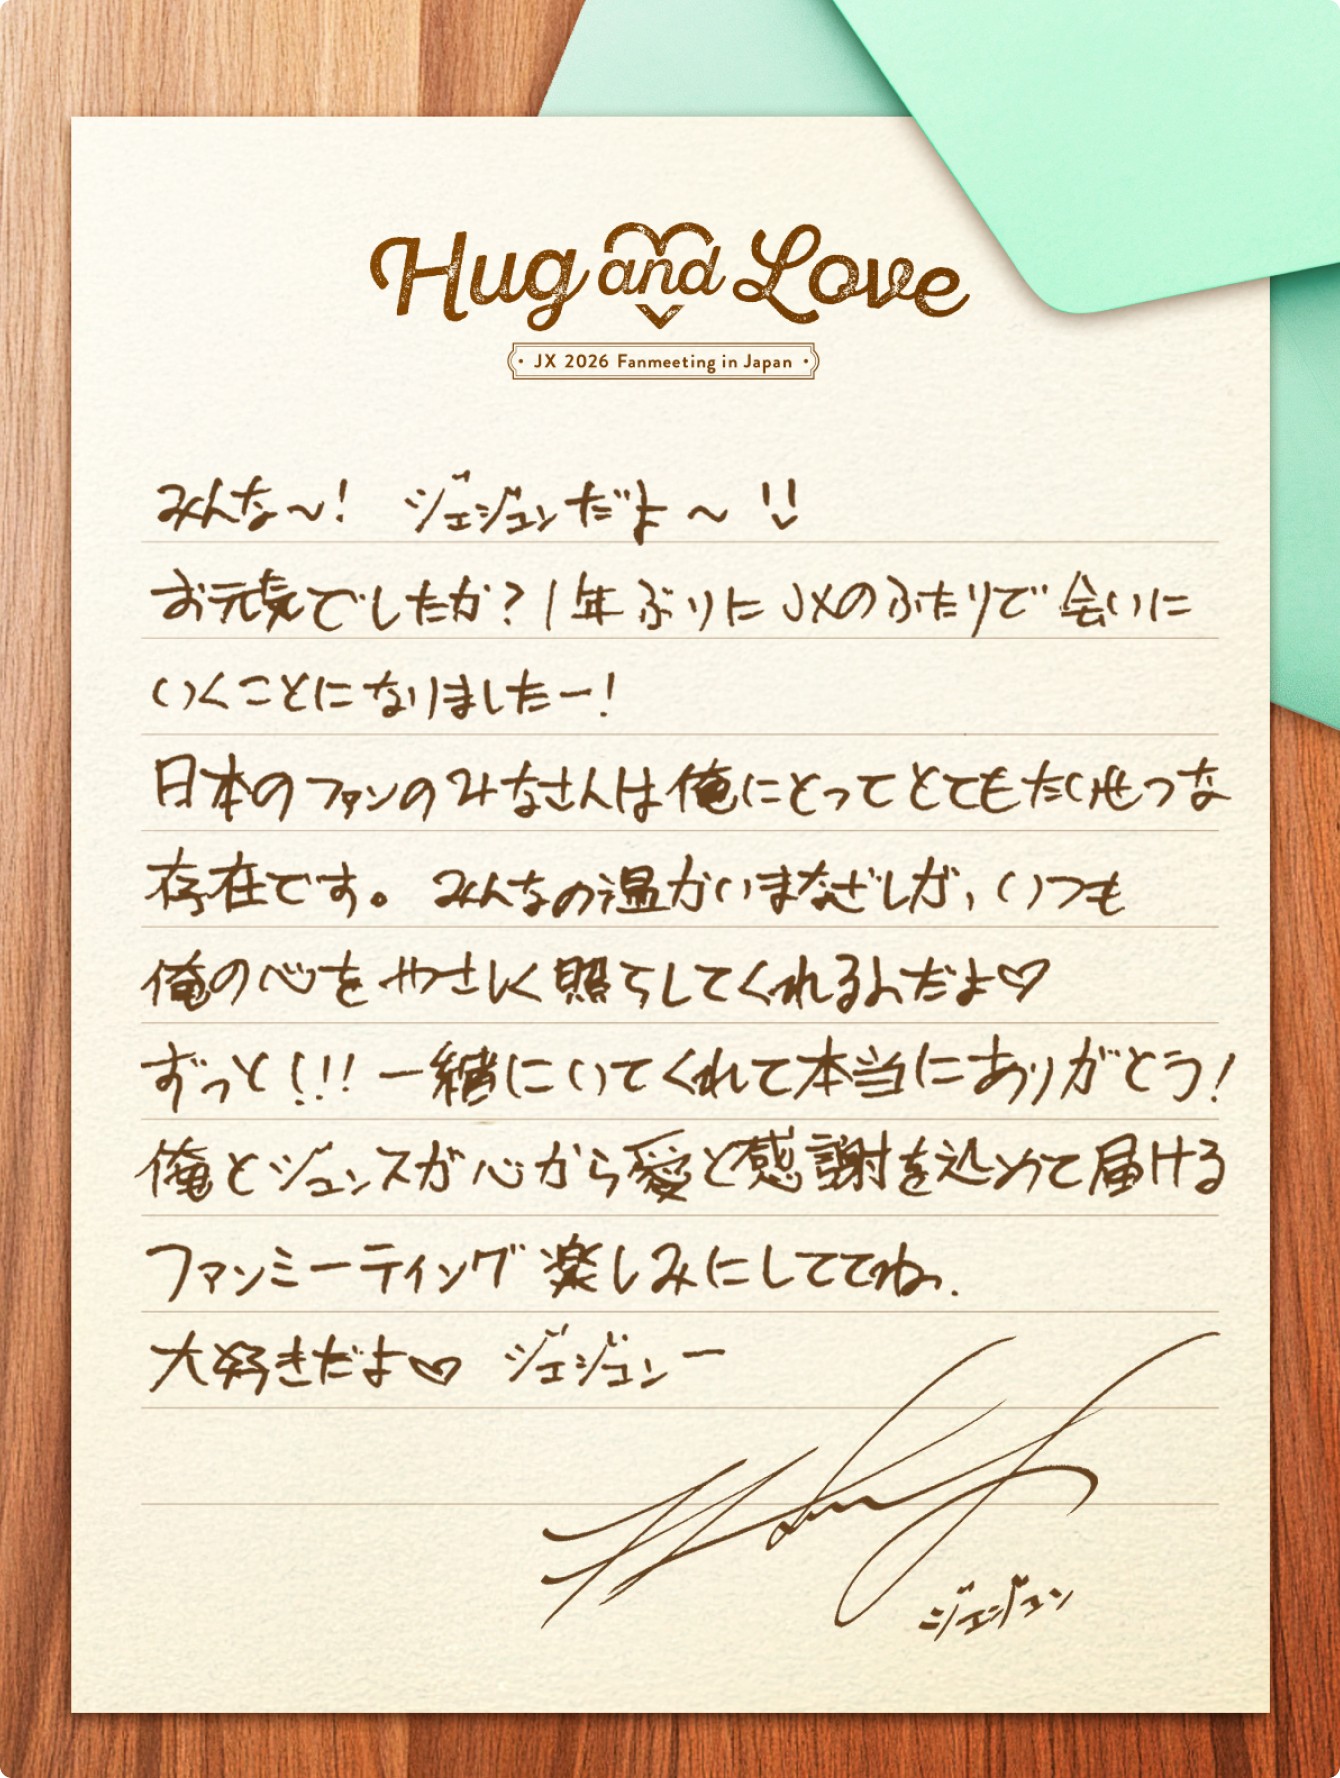 Hug and Love
JX 2026 Fanmeeting in Japan
みんな〜! ジェジュンだよ〜!!
お元気でしたか?1年ぶりにJXのふたりで会いに
いくことになりましたー!
日本のファンのみなさんは俺にとってとてもたいせつな
存在です。みんなの温かいまなざしが、いつも
俺の心をやさしく照らしてくれるんだよ♡
ずっと!!! 一緒にいてくれて本当にありがとう!
俺とジュンスが心から愛と感謝を込めて届ける
ファンミーティング楽しみにしててね.
大好きだよ♡ ジェジュンー
ジェジュン